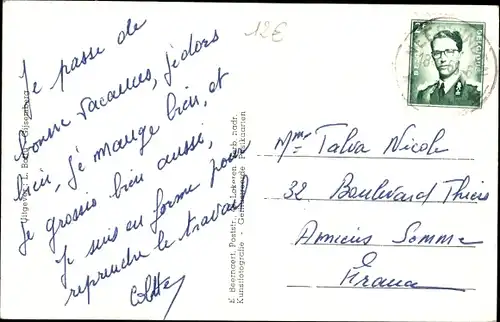 12€
Je passe de
bonne vacances, je dors
bien, je mange bien, et
je grossis bien aussi,
je suis en forme pour
reprendre le travail
Mme Talva Nicole
32 Boulevard Thiers
Amiens Somme
France
E. Beernaert, Poststr., Lokeren verb. nadr.
Kunstfotografie - Genummerde Postkaarten
Uitgever: L.
BELGIQUE